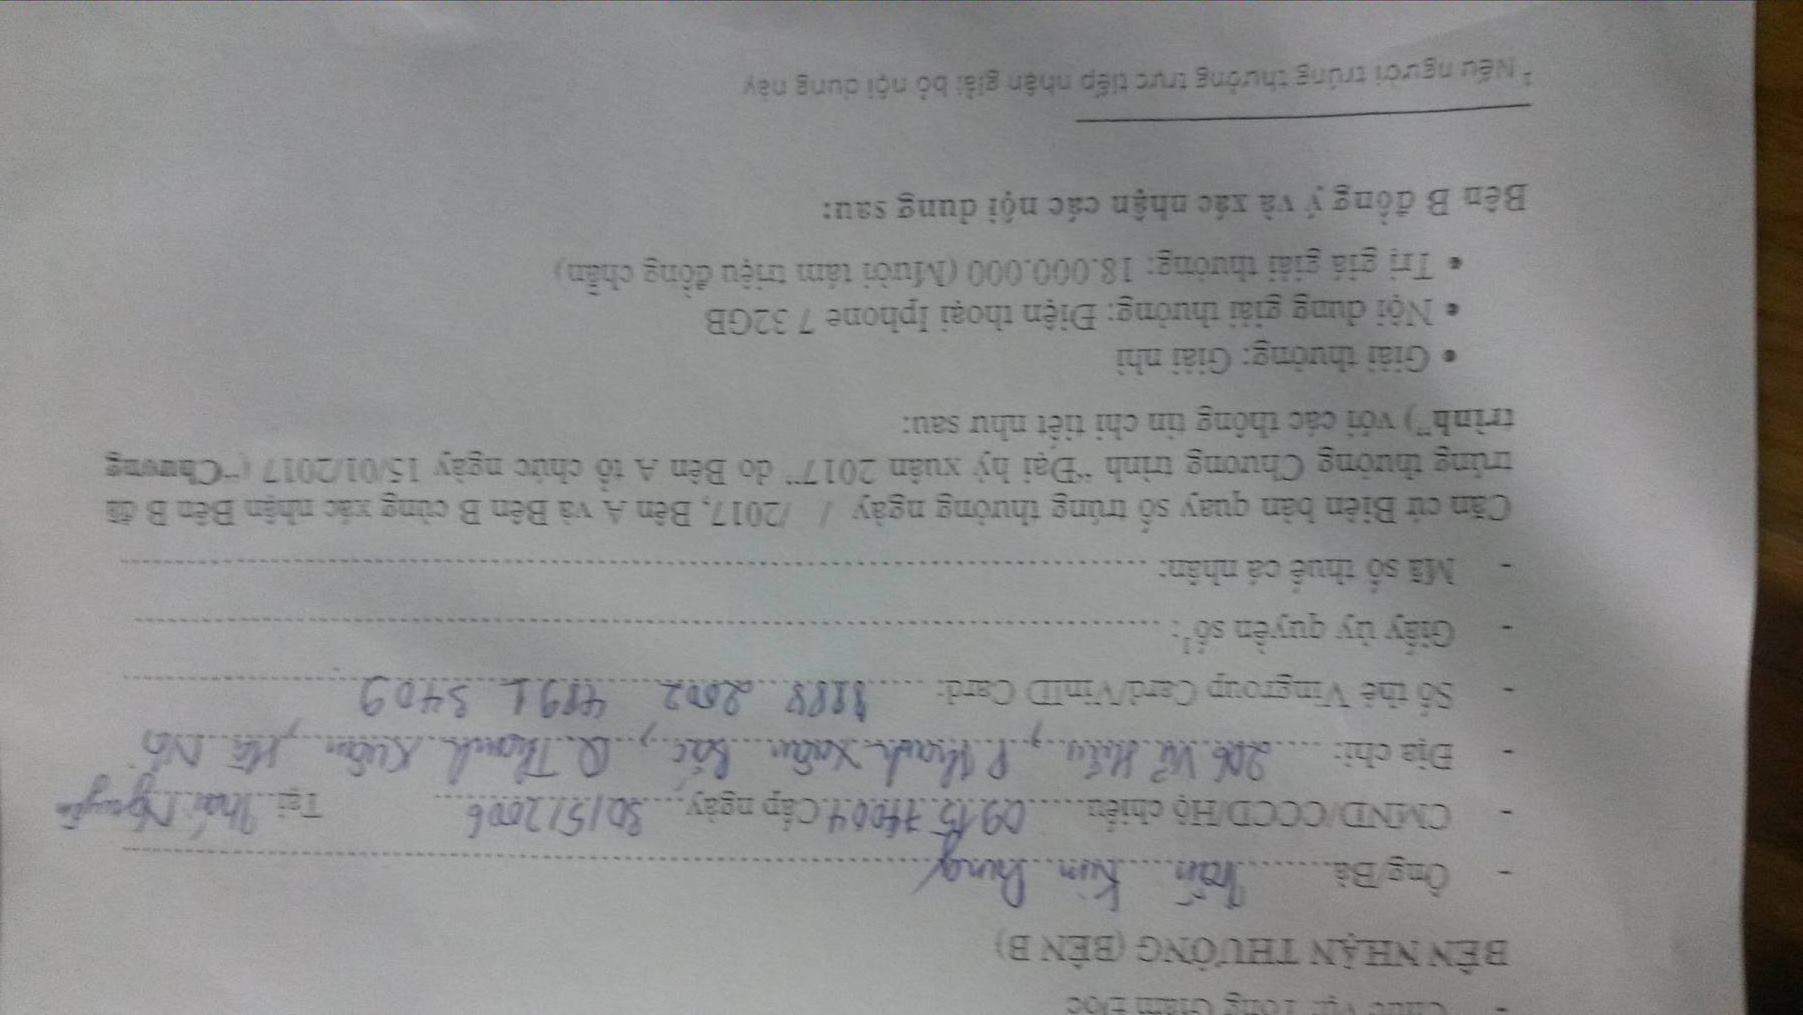 - Chức vụ: Tổng Giám Đốc
BÊN NHẬN THƯỞNG (BÊN B)
- Ông/Bà: Trần Kim Dung
- CMND/CCCD/Hộ chiếu Cấp ngày 30/5/2006 Tại Thái Nguyên
- Địa chỉ: 206 Vũ Hữu, P. Thanh Xuân Bắc, Q. Thanh Xuân, Hà Nội
- Số thẻ Vingroup Card/VinID Card: 8888 2002 4891 3409
- Giấy ủy quyền số¹:
- Mã số thuế cá nhân:
Căn cứ Biên bản quay số trúng thưởng ngày / /2017, Bên A và Bên B cùng xác nhận Bên B đã
trúng thưởng Chương trình "Đại hỷ xuân 2017" do Bên A tổ chức ngày 15/01/2017 ("Chương
trình") với các thông tin chi tiết như sau:
• Giải thưởng: Giải nhì
• Nội dung giải thưởng: Điện thoại Iphone 7 32GB
• Trị giá giải thưởng: 18.000.000 (Mười tám triệu đồng chẵn)
Bên B đồng ý và xác nhận các nội dung sau:
¹ Nếu người trúng thưởng trực tiếp nhận giải bỏ nội dung này